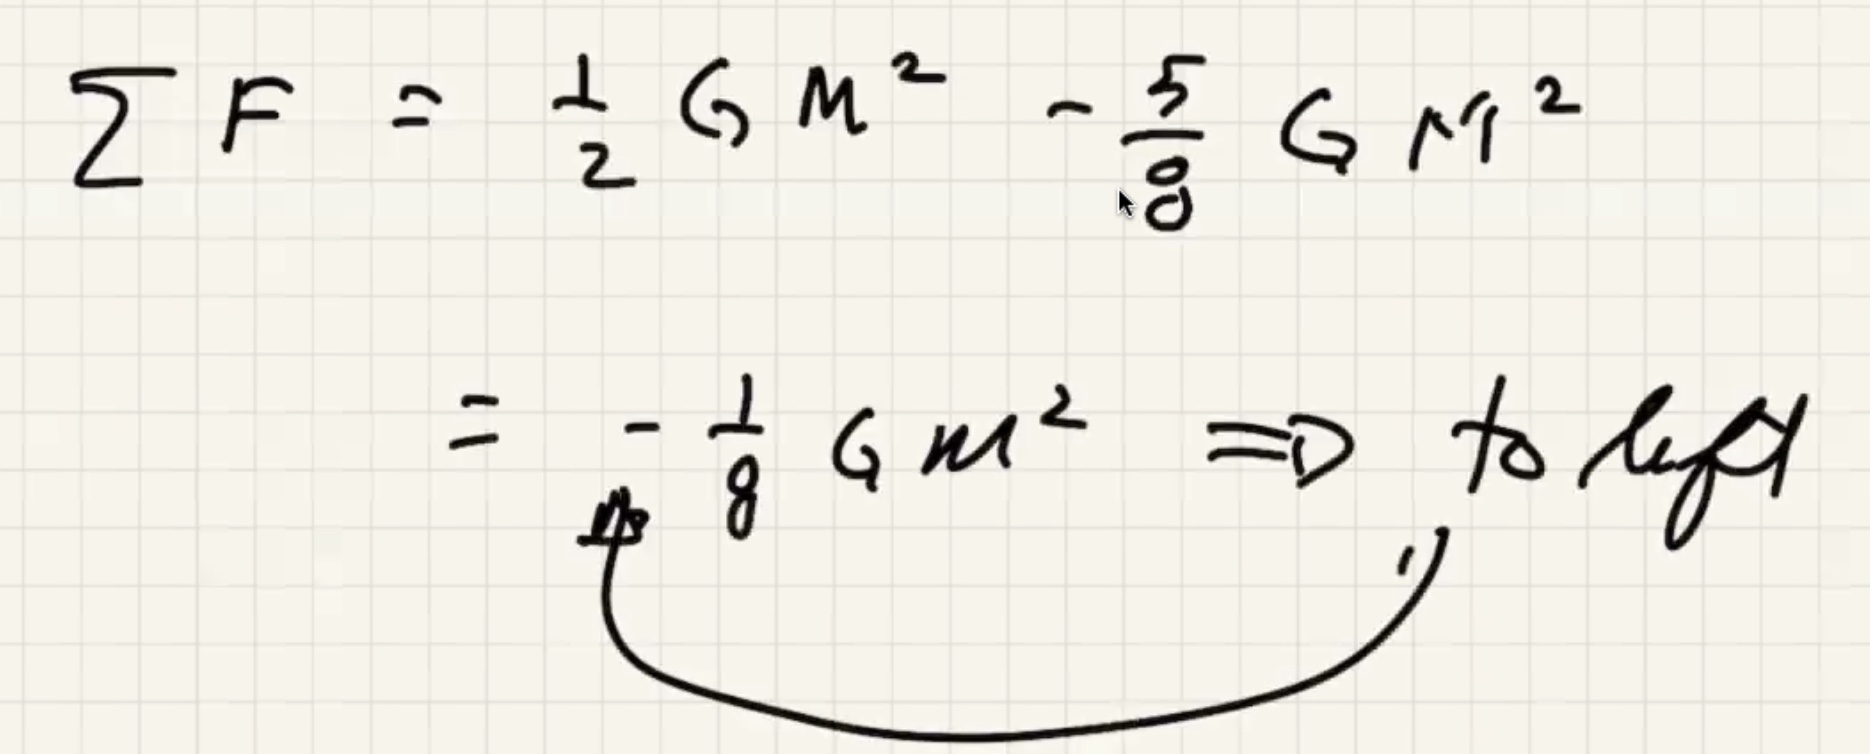 ΣF = 1/2 GM² - 5/8 GM²
= - 1/8 GM² ⇒ to left